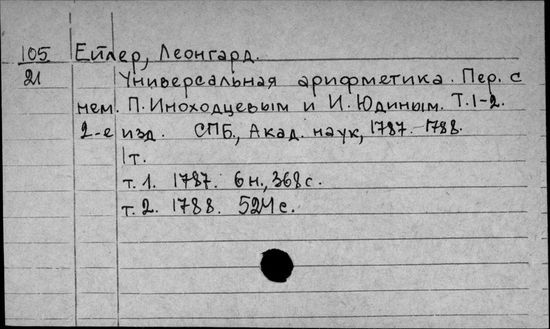 105 Ейлер, Леонгард.
21 Универсальная арифметика. Пер. с
нем. П. Иноходцевым и И. Юдиным. Т. 1-2.
2-е изд. СПБ, Акад. наук, 1787-1788.
1т.
т. 1. 1787. 6 н., 368 с.
т. 2. 1788. 524 с.